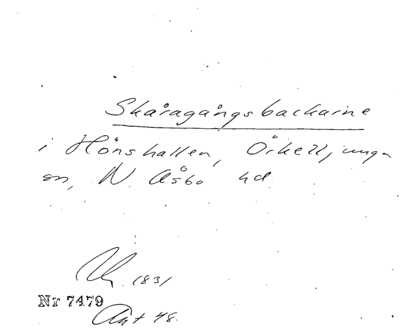 Skåragångsbackarne
i Hönshallen, Örkelljunga
sn, N. Åsbo hd.
1831
Nr 7479
Ant 48.